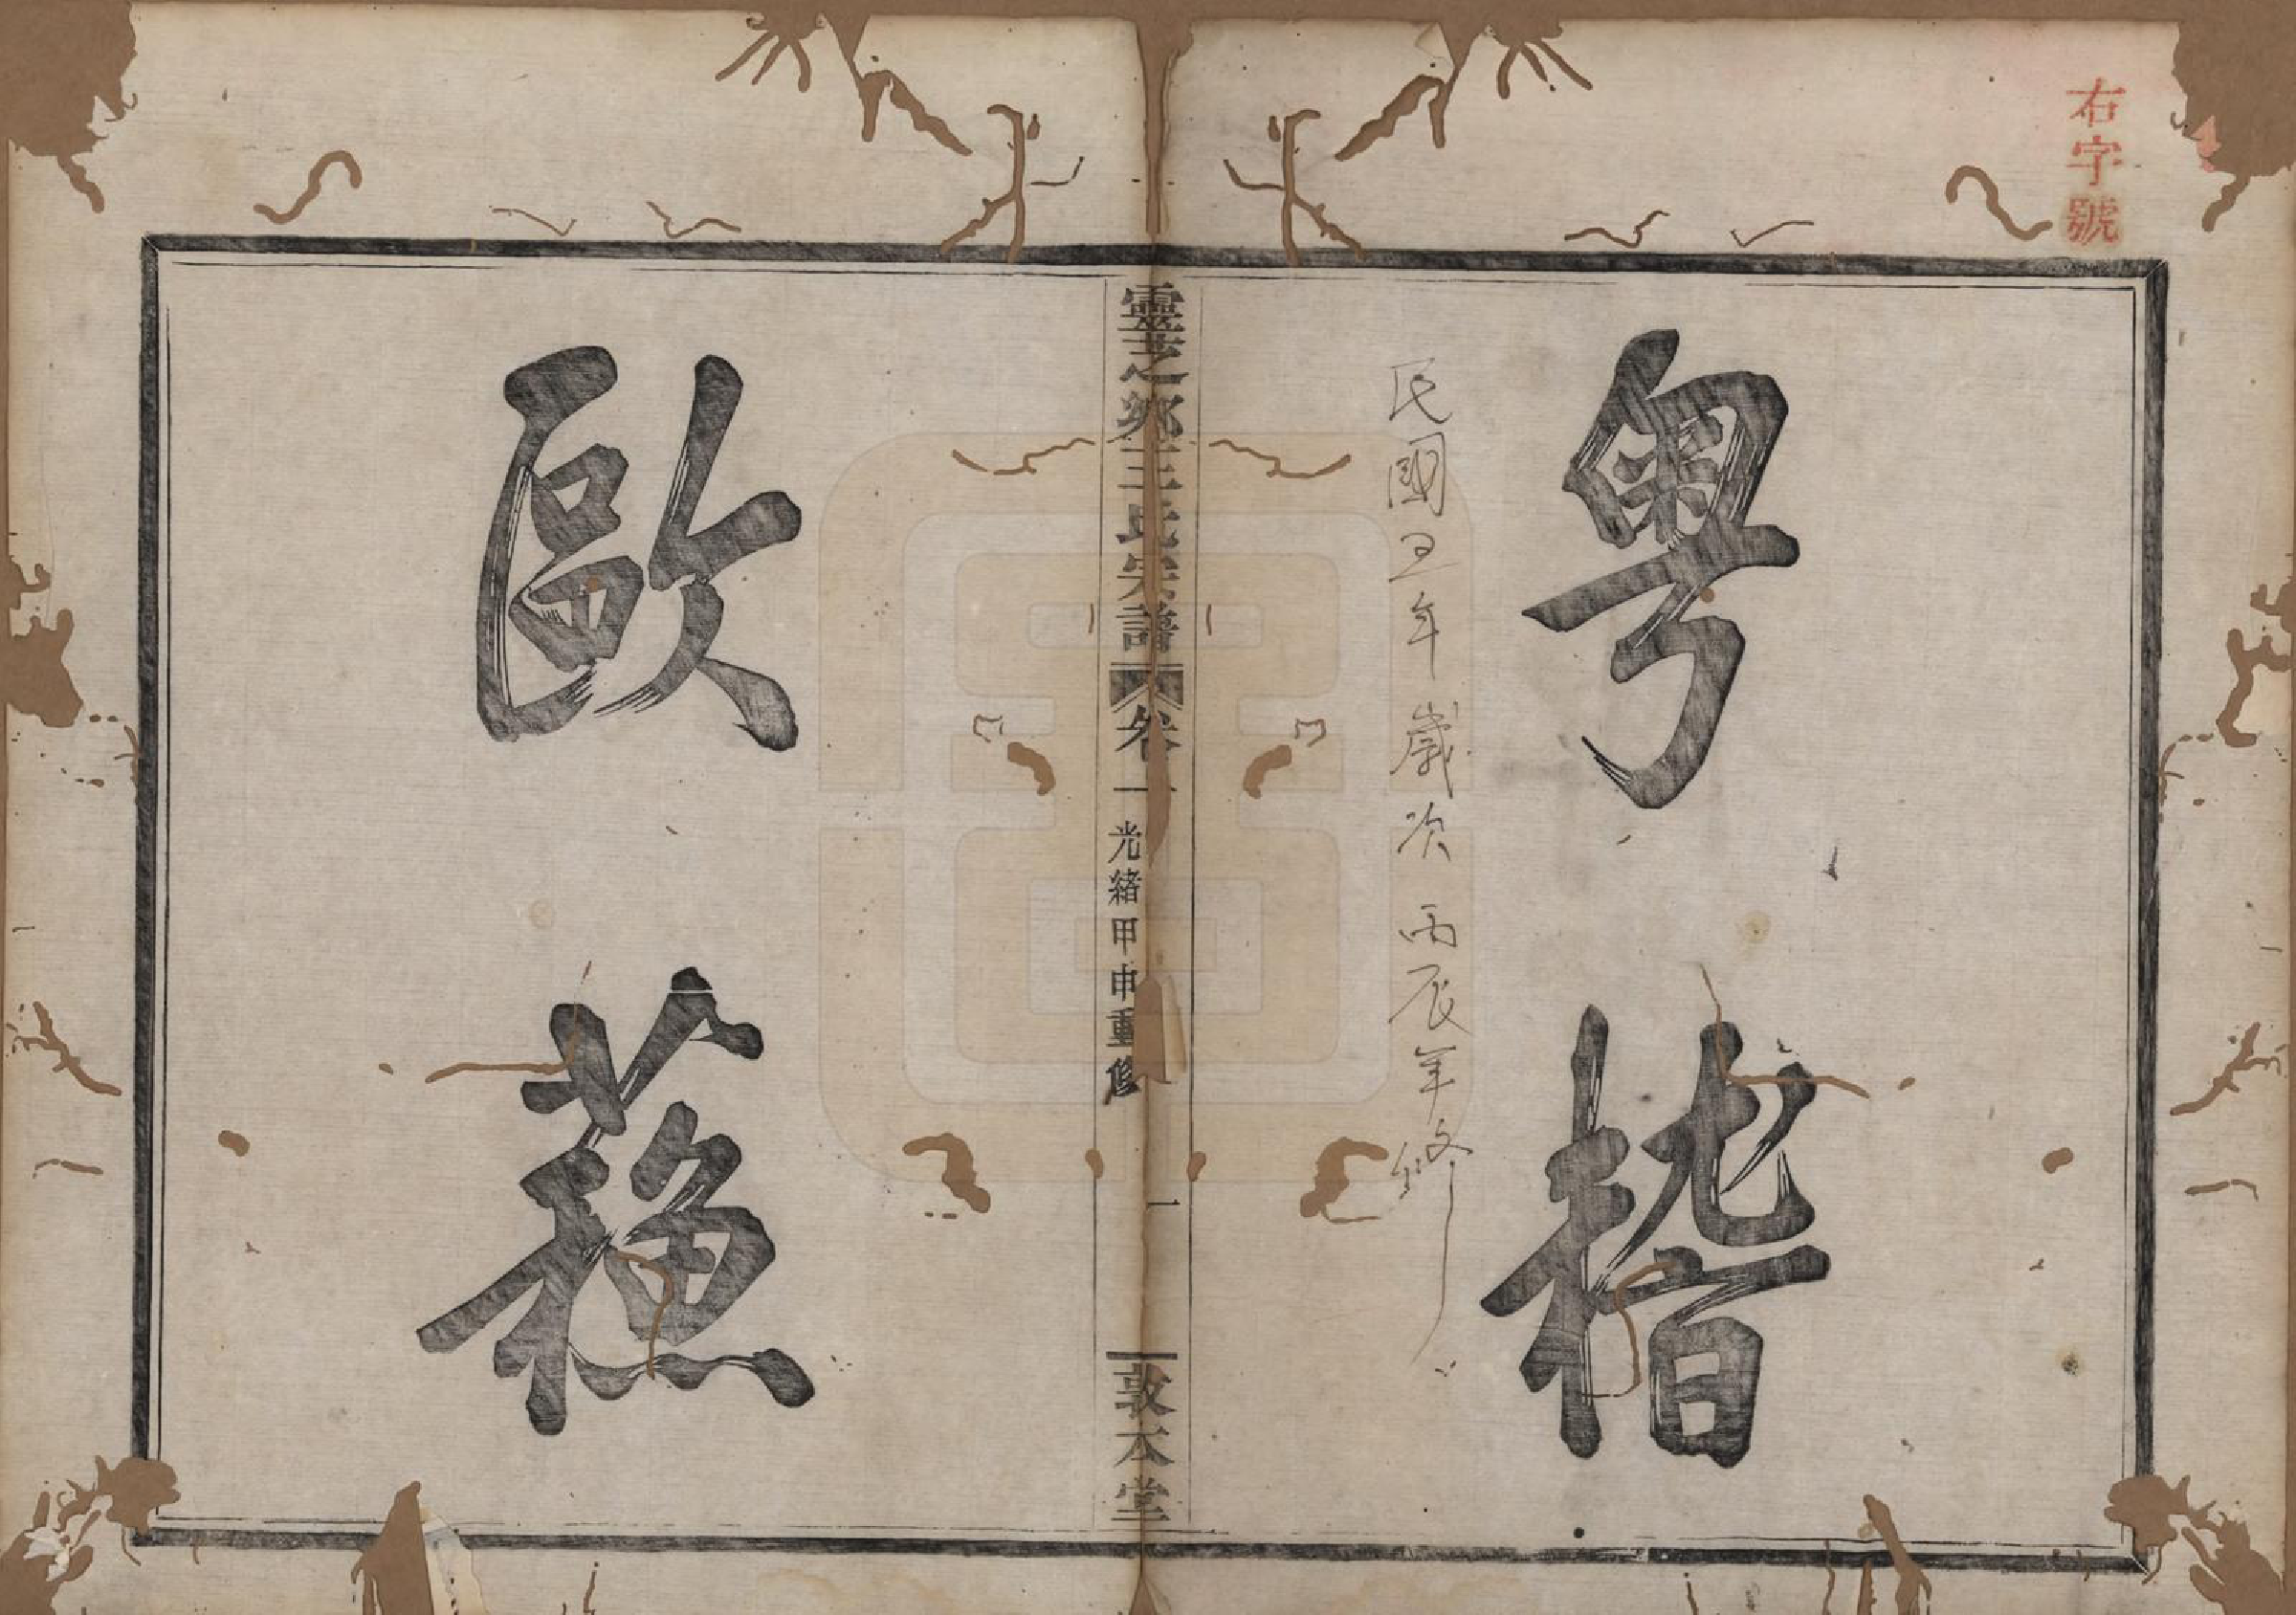 右字號
粤稽
民國五年歲次丙辰年修
靈芝鄉王氏宗譜 卷一 光緒甲申重修 一 敦本堂
歐蘇